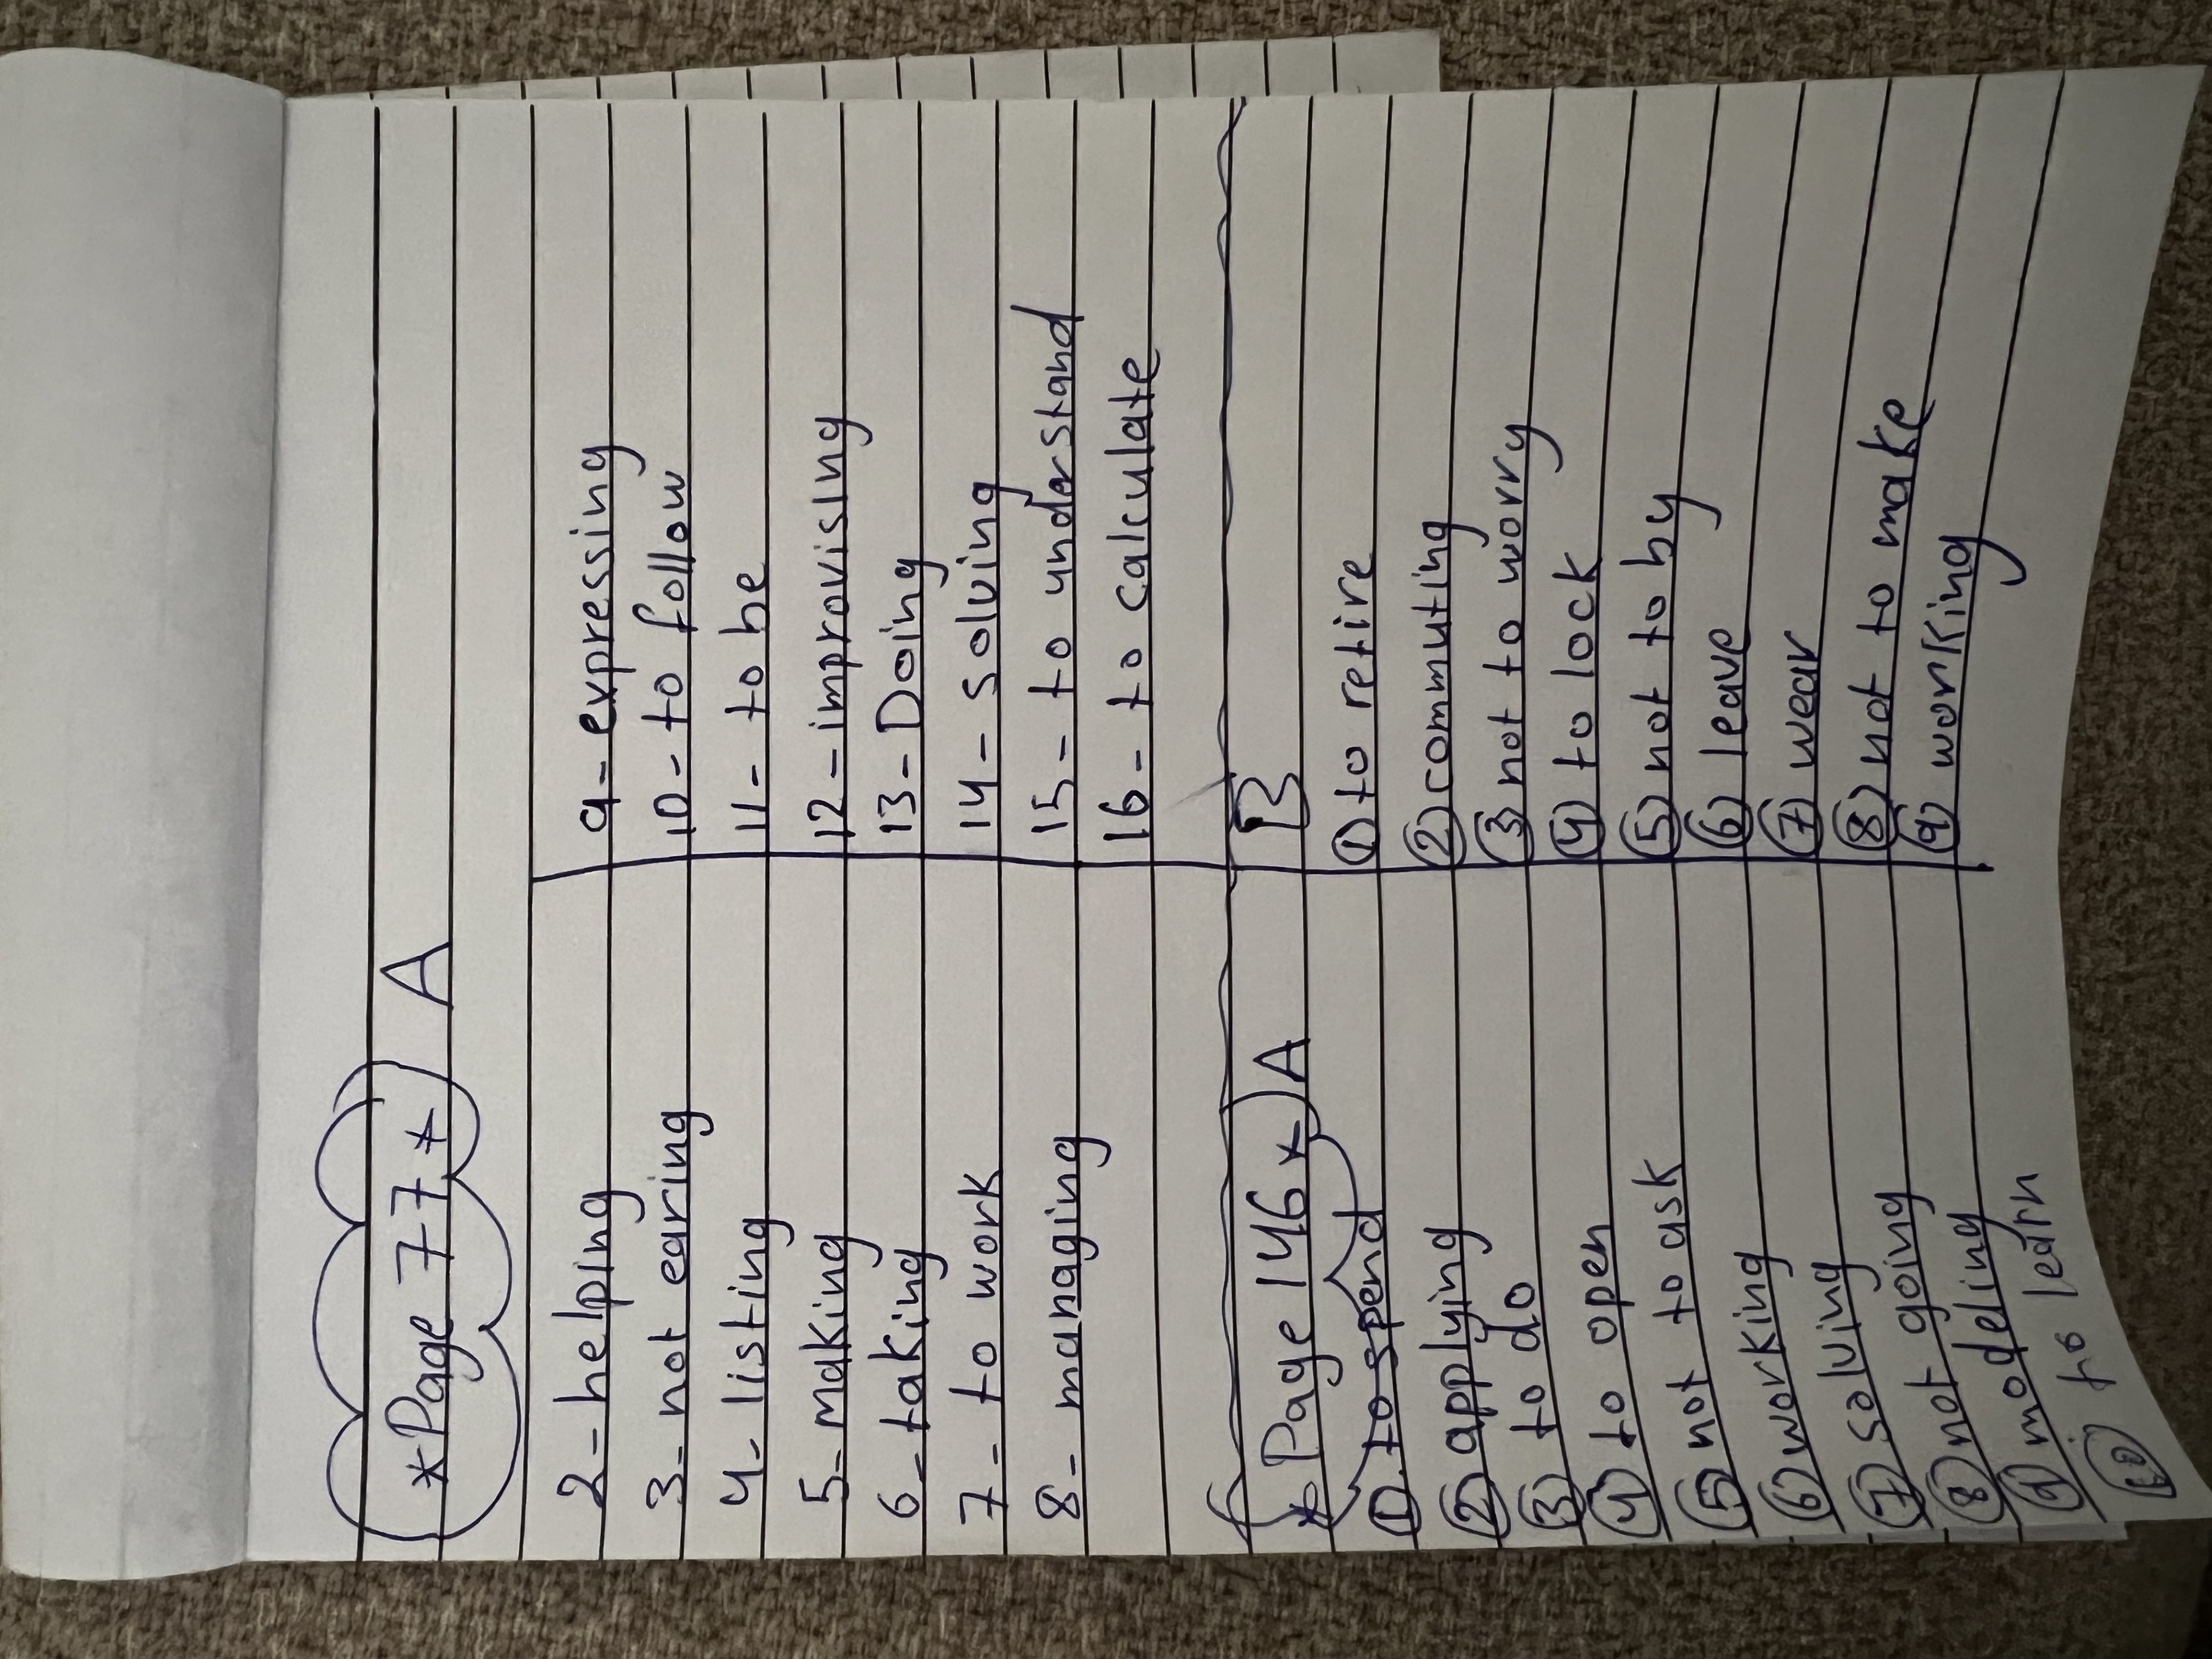 *Page 77* A
2- helping
3- not earing
4- listing
5- making
6- taking
7- to work
8- managing
9- expressing
10- to follow
11- to be
12- improvising
13- Doing
14- solving
15- to understand
16- to calculate
*Page 146* A
① to spend
② applying
③ to do
④ to open
⑤ not to ask
⑥ working
⑦ solving
⑧ not going
⑨ modeling
⑩ to learn
B
① to retire
② commuting
③ not to worry
④ to lock
⑤ not to by
⑥ leave
⑦ wear
⑧ not to make
⑨ working